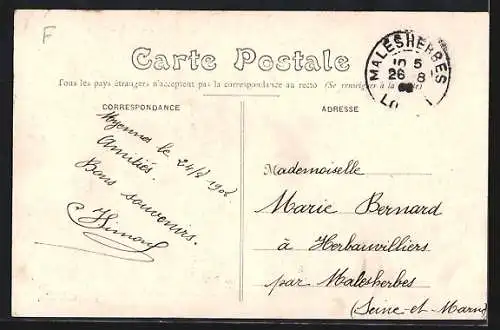 F
Carte Postale
MALESHERBES
10 5
26 8
Tous les pays étrangers n'acceptent pas la correspondance au recto (Se renseigner à la Poste)
CORRESPONDANCE
ADRESSE
Mayennes le 24/8 1908
Amitiés.
Bons souvenirs.
Simon
Mademoiselle
Marie Bernard
à Herbauvilliers
par Malesherbes
(Seine-et-Marne)